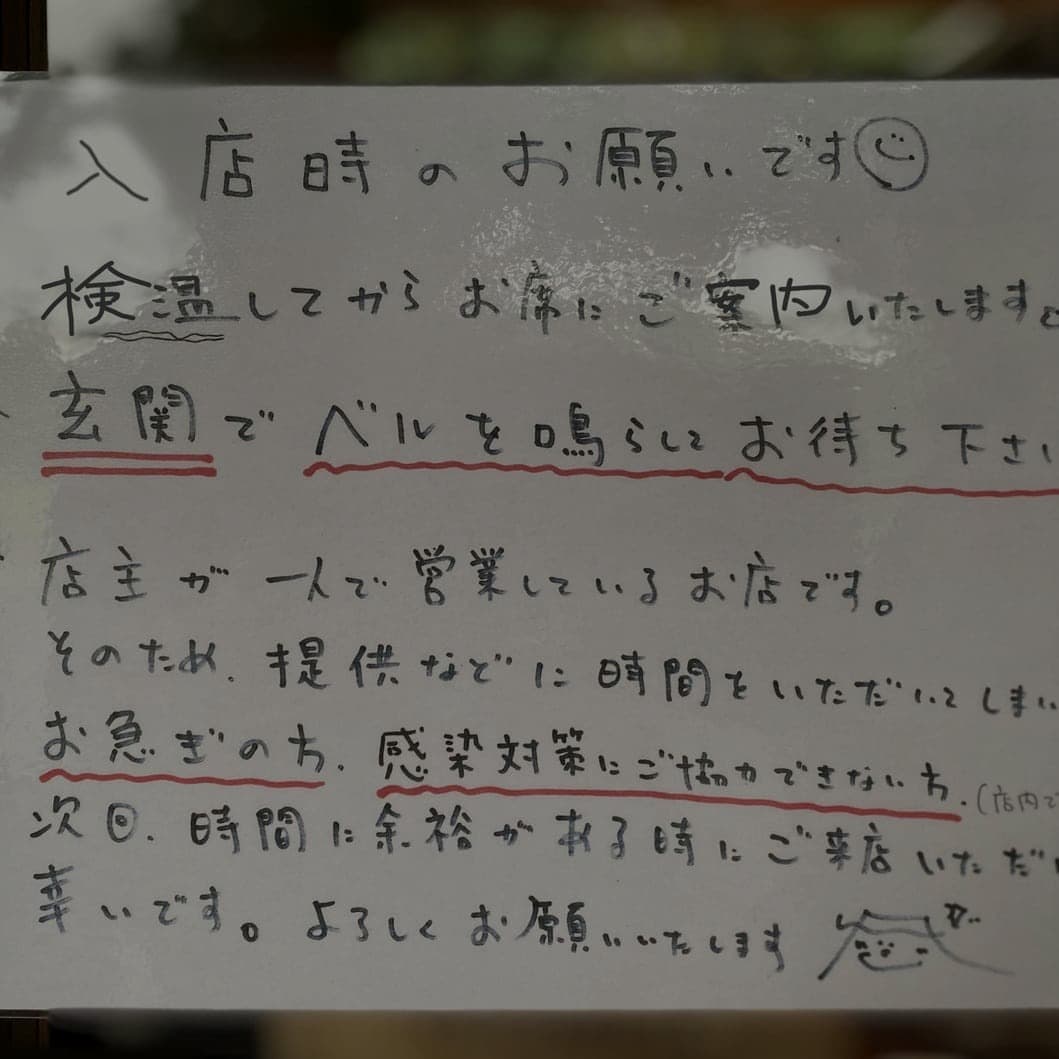 入店時のお願いです
検温してからお席にご案内いたします。
玄関でベルを鳴らしてお待ち下さい
店主が一人で営業しているお店です。
そのため、提供などに時間をいただいてしまい
お急ぎの方、感染対策にご協力できない方、(店内で
次回、時間に余裕がある時にご来店いただけ
幸いです。よろしくお願いいたします